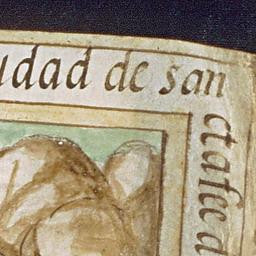 udad de san
ctafee d